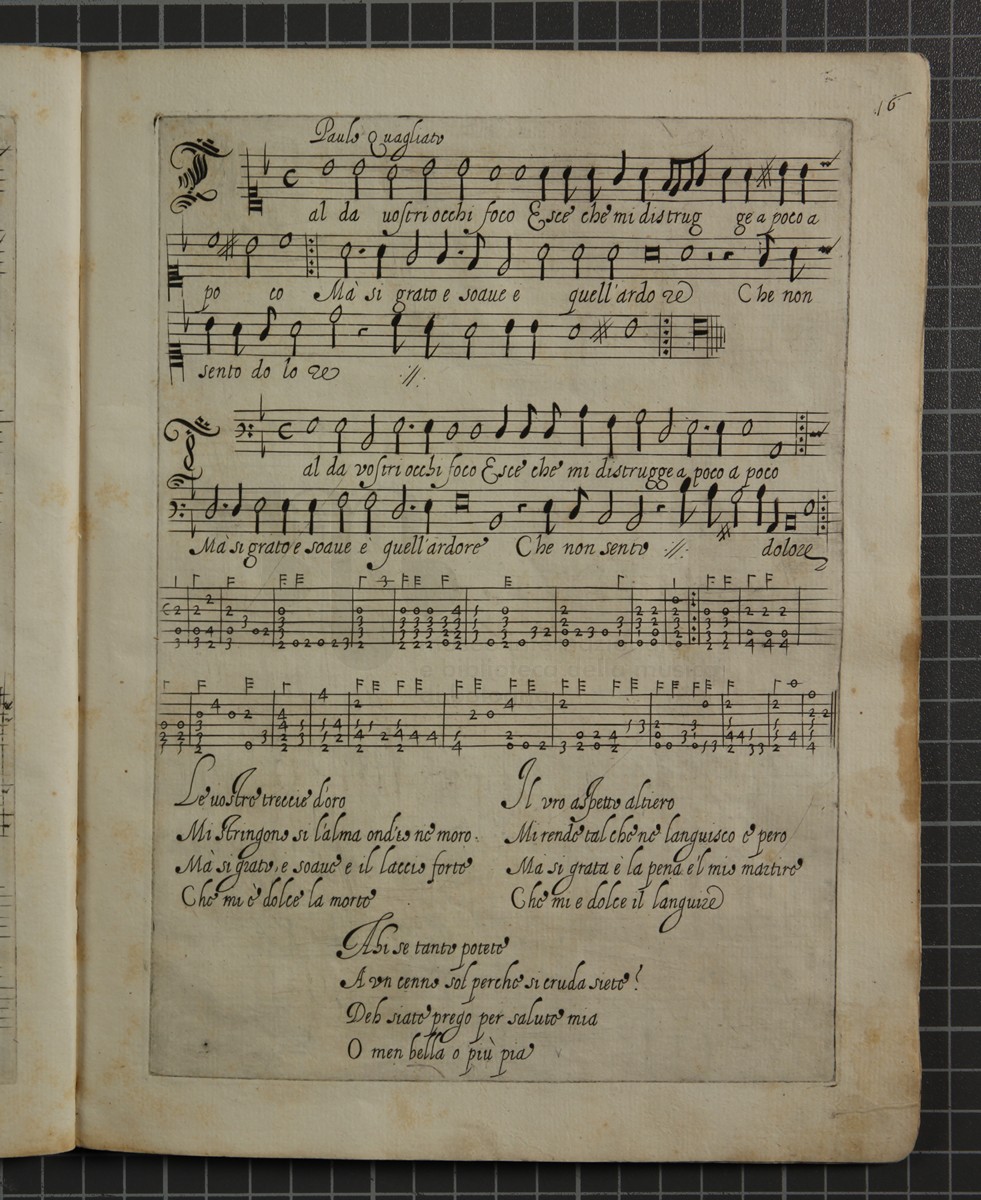 16
Paulo Quagliato
T al da uostri occhi foco Esce che mi distrug ge a poco a
po co Mà si grato e soaue e quell'ardo re Che non
sento do lo re
T al da vostri occhi foco Esce che mi distrugge a poco a poco
Mà si grato e soaue è quell'ardore Che non sento dolore
Le uostre treccie d'oro
Mi stringono si l'alma ond'io ne moro
Mà si grato, e soaue e il laccio forte
Che mi è dolce la morte
Il vro aspetto altiero
Mi rende tal che ne languisco e pero
Ma si grata è la pena e'l mio martire
Che mi e dolce il languire
Ahi se tanto potete
A vn cenno sol perche si cruda siete?
Deh siate prego per salute mia
O men bella o più pia